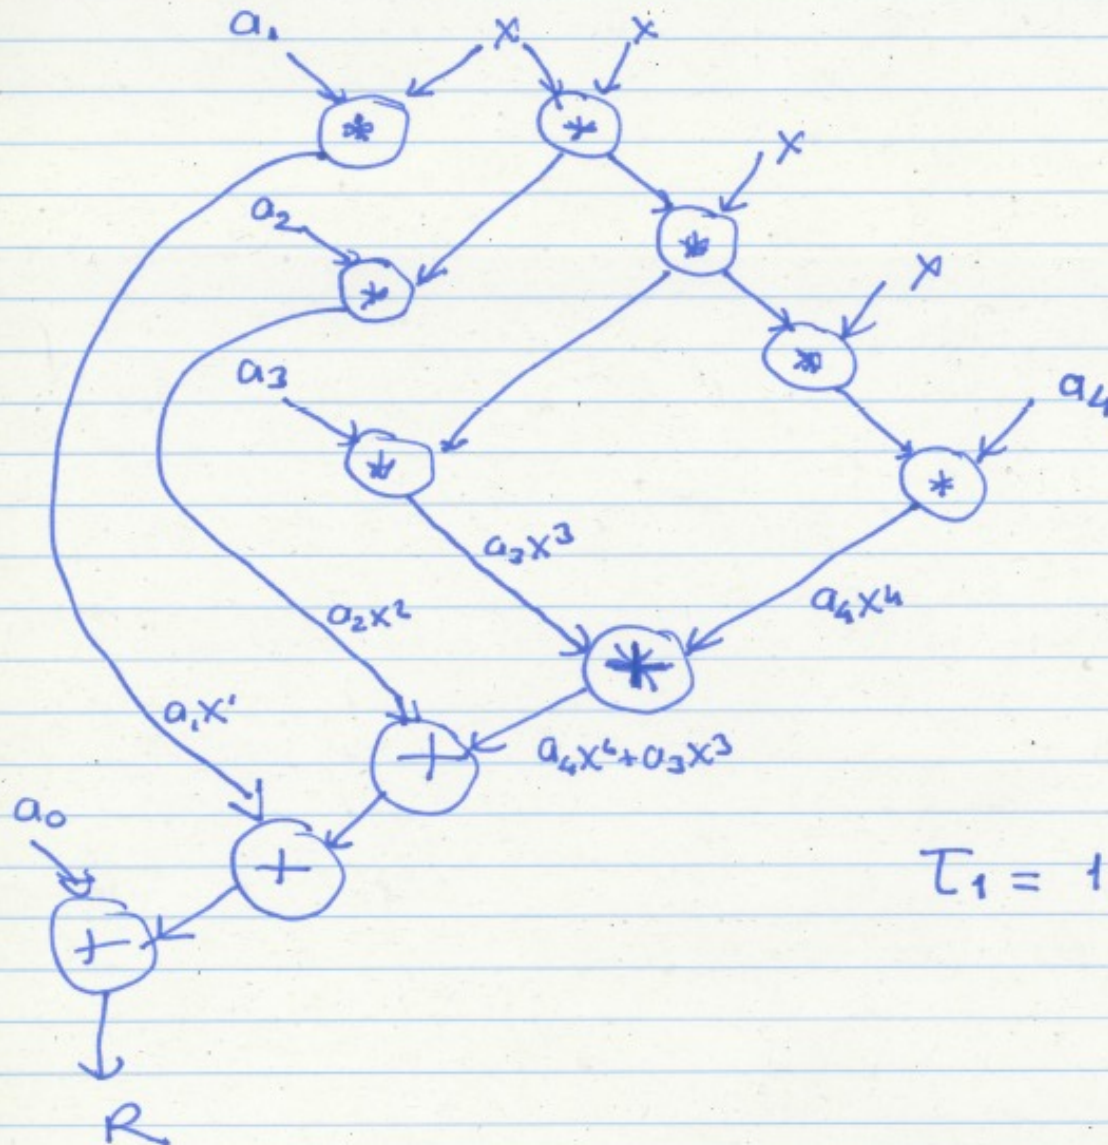 a₁ x x
* *
x
a₂ *
* x
a₃ *
a₄
* *
a₃x³
a₄x⁴
a₂x²
*
a₁x¹
+ a₄x⁴+a₃x³
a₀
+
T₁ = 1
+
R